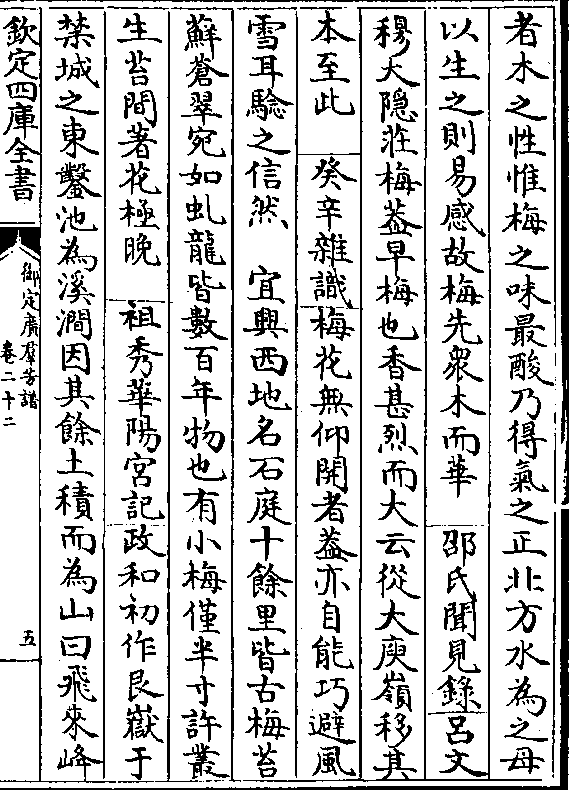 者木之性惟梅之味最酸乃得氣之正北方水為之母
以生之則易感故梅先衆木而華　邵氏聞見錄呂文
穆大隱莊梅蓋早梅也香甚烈而大云從大庾嶺移其
本至此　癸辛雜識梅花無仰開者蓋亦自能巧避風
雪耳驗之信然　宜興西地名石庭十餘里皆古梅苔
蘚蒼翠宛如虬龍皆數百年物也有小梅僅半寸許叢
生苔間著花極晚　祖秀華陽宮記政和初作艮嶽于
禁城之東鑿池為溪澗因其餘土積而為山曰飛來峰
欽定四庫全書
御定廣羣芳譜
卷二十二
五